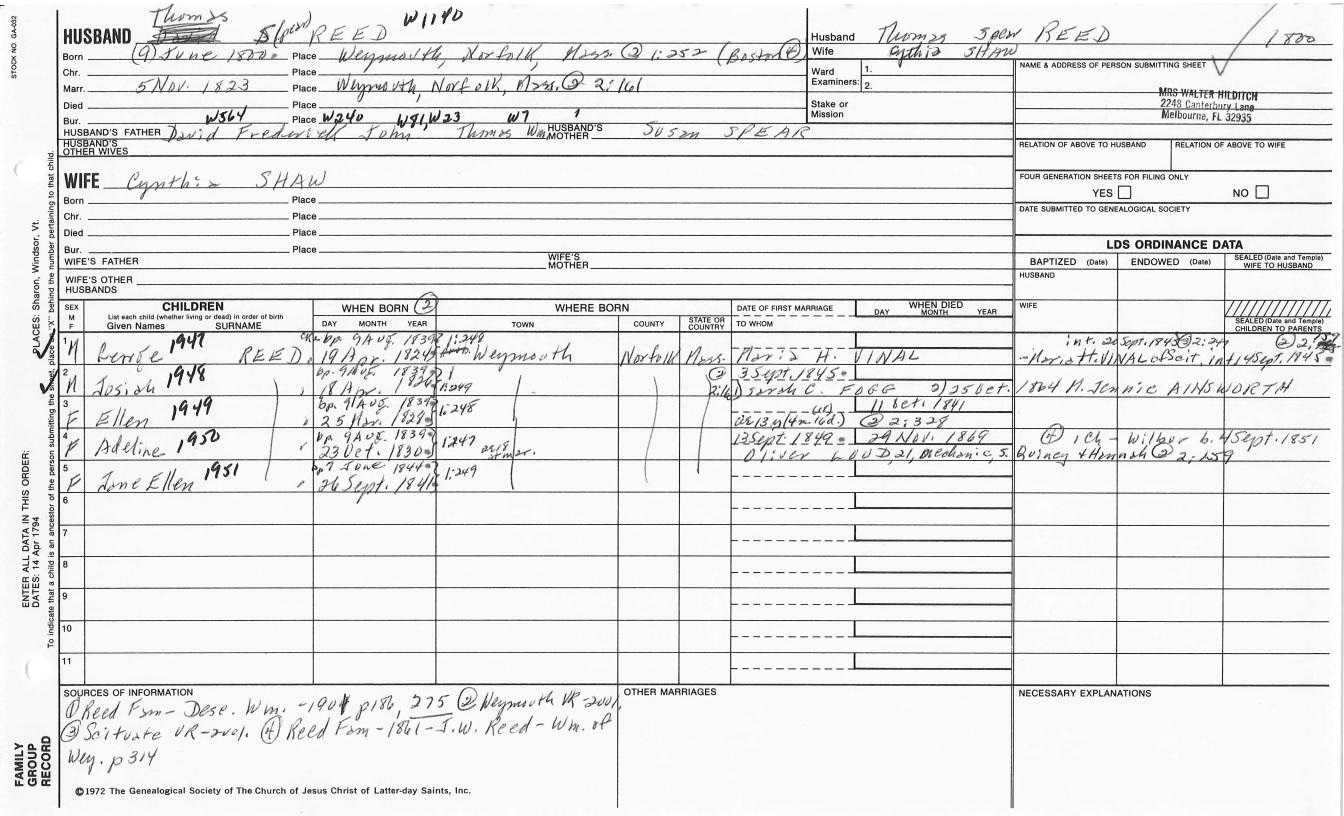 STOCK NO. GA-032
HUSBAND Thomas S(pear) REED W1140
Born (9) June 1800 Place Weymouth, Norfolk, Mass. ② 1:252 (Boston ④)
Chr. Place
Marr. 5 Nov. 1823 Place Weymouth, Norfolk, Mass. ② 2:161
Died Place
Bur. W564 Place W240 W81, W23 W7 1
HUSBAND'S FATHER David Frederick John Thomas Wm. HUSBAND'S MOTHER Susan SPEAR
HUSBAND'S OTHER WIVES
Husband Thomas Spear REED 1800
Wife Cynthia SHAW
Ward Examiners: 1.
2.
Stake or Mission
NAME & ADDRESS OF PERSON SUBMITTING SHEET
MRS WALTER HILDITCH
2248 Canterbury Lane
Melbourne, FL 32935
RELATION OF ABOVE TO HUSBAND RELATION OF ABOVE TO WIFE
FOUR GENERATION SHEETS FOR FILING ONLY
YES NO
DATE SUBMITTED TO GENEALOGICAL SOCIETY
WIFE Cynthia SHAW
Born Place
Chr. Place
Died Place
Bur. Place
WIFE'S FATHER WIFE'S MOTHER
WIFE'S OTHER HUSBANDS
LDS ORDINANCE DATA
BAPTIZED (Date) ENDOWED (Date) SEALED (Date and Temple) WIFE TO HUSBAND
HUSBAND
WIFE
SEALED (Date and Temple) CHILDREN TO PARENTS
SEX M F CHILDREN WHEN BORN ② WHERE BORN DATE OF FIRST MARRIAGE WHEN DIED
List each child (whether living or dead) in order of birth
Given Names SURNAME DAY MONTH YEAR TOWN COUNTY STATE OR COUNTRY TO WHOM DAY MONTH YEAR
1 bp. 9 Aug. 1839 1:249 int. 20 Sept. 1845 ③ 2:291 ②
M George 1947 REED 19 Apr. 1824 Weymouth Norfolk Mass. Maria H. VINAL - Maria H. VINAL of Scit. int. 14 Sept. 1845
2 bp. 9 Aug. 1839 ② 3 Sept. 1845
M Josiah 1948 18 Apr. 1826 1:249 2:161 Sarah C. FOGG 2) 25 Oct. 1864 M. Jennie AINSWORTH
3 bp. 9 Aug. 1839 1:248 11 Oct. 1841
F Ellen 1949 25 Mar. 1828 ae 13 y (4m. 16d.) ② 2:328
4 bp 9 Aug. 1839 1:247 13 Sept. 1849 29 Nov. 1869 ④ 1 Ch - Wilbur b. 4 Sept. 1851
F Adeline 1950 23 Oct. 1830 ae 18 at mar. Oliver LOUD, 21, mechanic, s. Quincy & Hannah ② 2:159
5 bp 7 June 1844 1:249
F Jane Ellen 1951 26 Sept. 1841
6
7
8
9
10
11
SOURCES OF INFORMATION
① Reed Fam - Desc. Wm. - 1901 p186, 275 ② Weymouth VR - 2 vol.
③ Scituate VR - 2 vol. ④ Reed Fam - 1861 - J.W. Reed - Wm. of
Wey. p 314
OTHER MARRIAGES
NECESSARY EXPLANATIONS
©1972 The Genealogical Society of The Church of Jesus Christ of Latter-day Saints, Inc.
FAMILY GROUP RECORD
ENTER ALL DATA IN THIS ORDER:
DATES: 14 Apr 1794
PLACES: Sharon, Windsor, Vt.
To indicate that a child is an ancestor of the person submitting the sheet, place an "X" behind the number pertaining to that child.